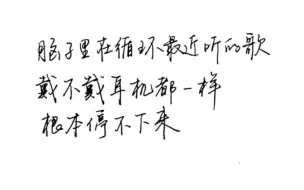 脑子里在循环最近听的歌
戴不戴耳机都一样
根本停不下来